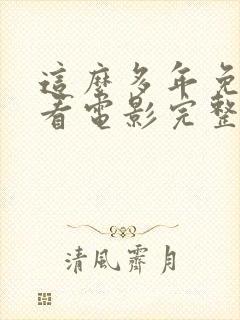 這麼多年免
看電影完整
清風霽月